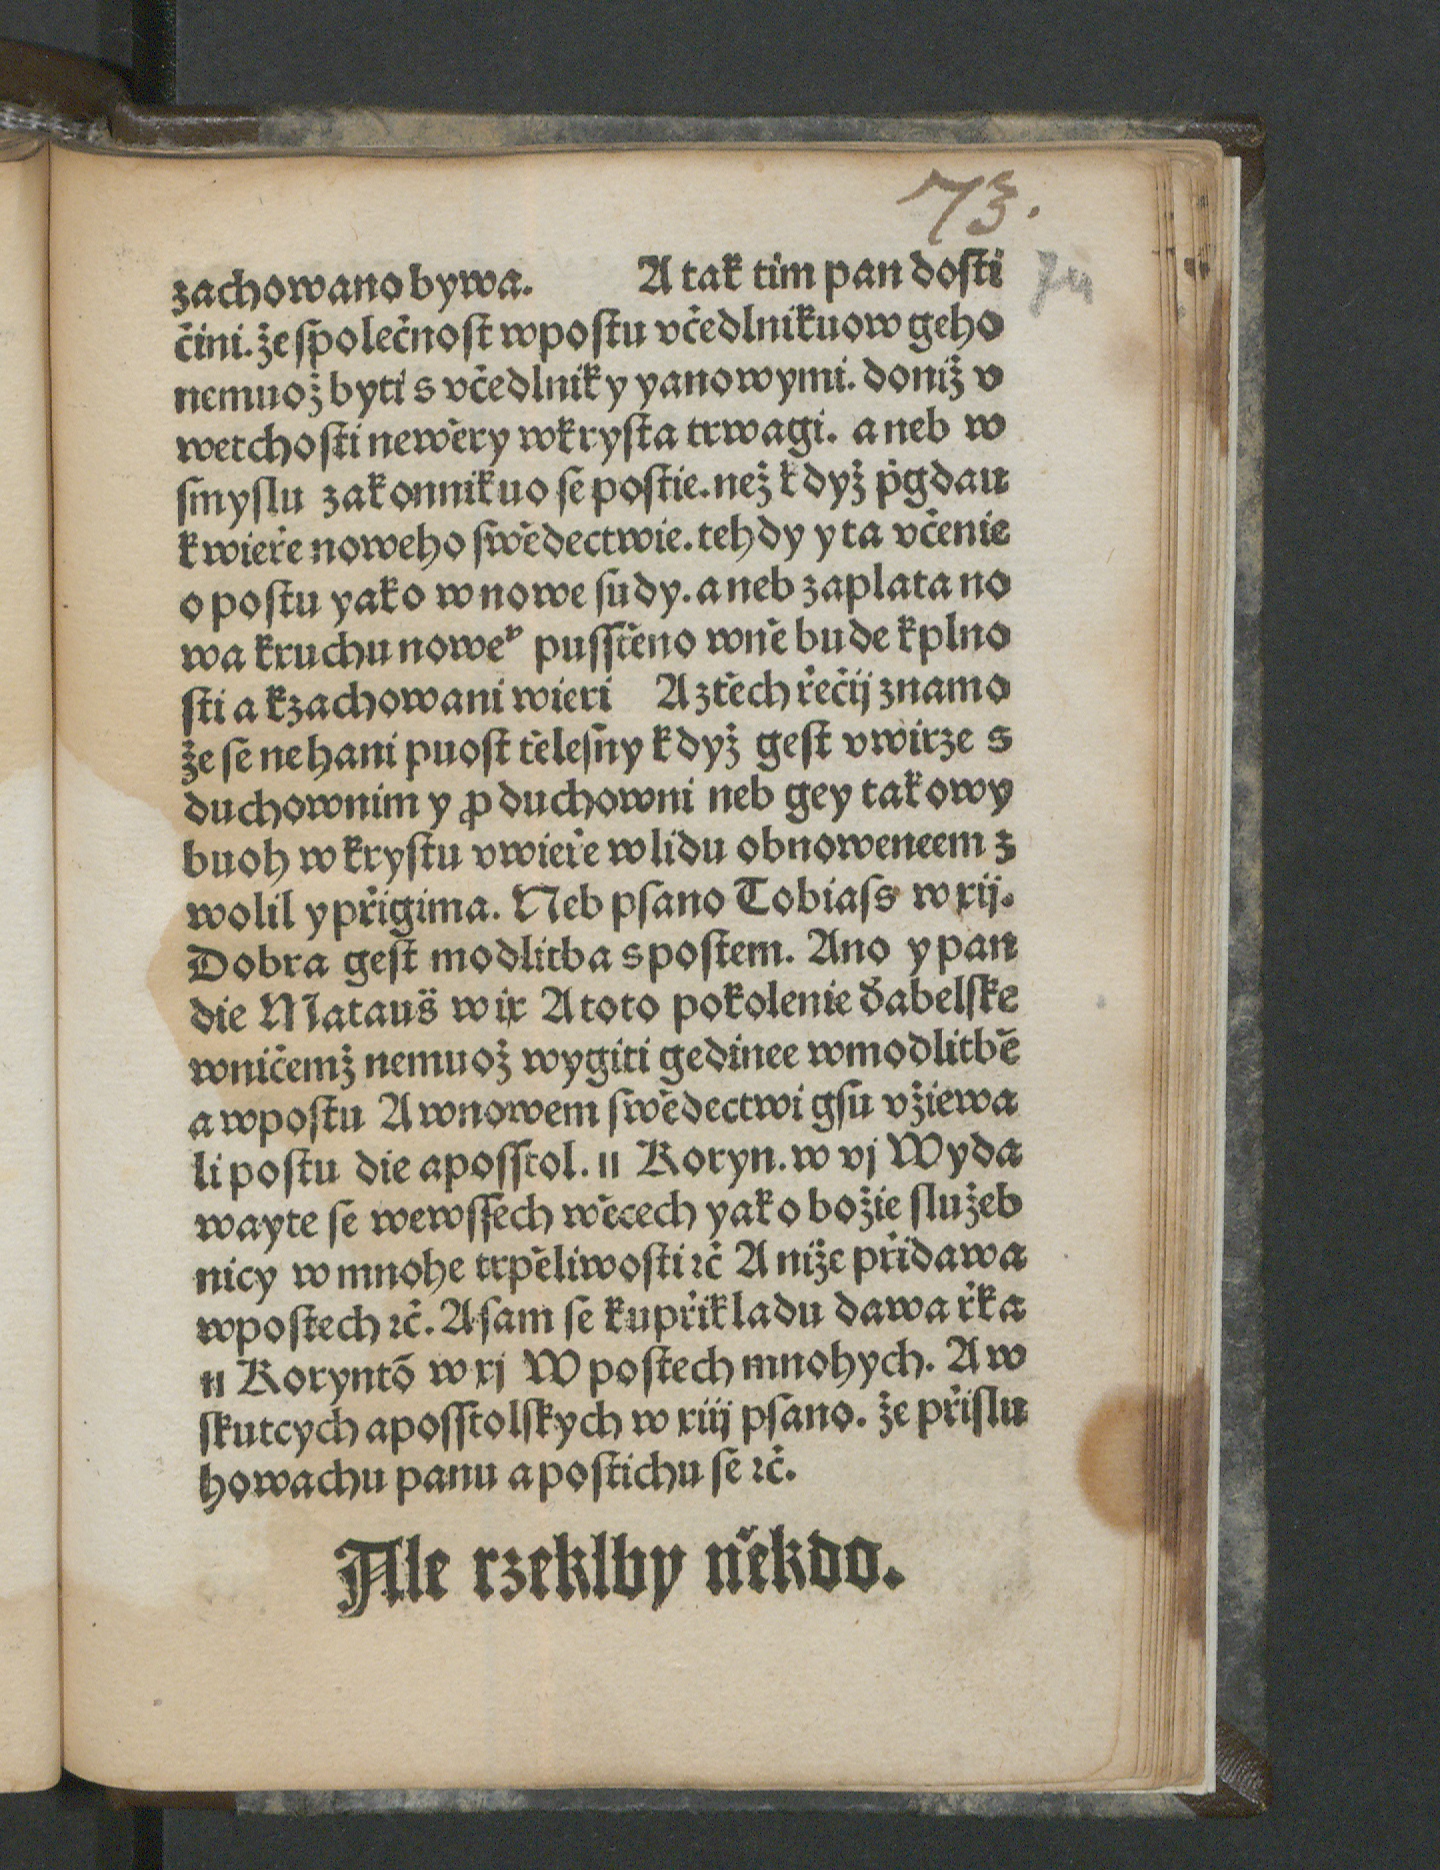 73.
74
zachowano bywa. A tak tim pan dosti
čini. že společnost wpostu včedlnikuow geho
nemuož byti s včedlniky yanowymi. doniž v
wetchosti newěry wkrysta trwagi. a neb w
smyslu zakonnikuo se postie. než když p̓gdau
k wieře noweho swědectwie. tehdy y ta včenie
o postu yako w nowe sudy. a neb zaplata no
wa kruchu nowe° pussťeno wně bude kplno
sti a kzachowani wieri A ztěch řečij znamo
že se nehani puost tělesny když gest vwirze s
duchownim y ꝓ duchowni neb gey takowy
buoh w krystu vwieře w lidu obnoweneem z
wolil y přigima. Neb psano Tobiass w xij.
Dobra gest modlitba s postem. Ano y pan
die Mataus̈ w ix A toto pokolenie ďabelske
wničemž nemuož wygiti gedinee wmodlitbě
a wpostu A wnowem swědectwi gsu vžiewa
li postu die aposstol. ii Koryn. w vj Wyda
wayte se wewssech wěcech yako božie služeb
nicy w mnohe trpěliwosti ⁊č A niže přidawa
wpostech ⁊č. A sam se kupřikladu dawa řka
ii Koryntō w xj W postech mnohych. A w
skutcych aposstolskych w xiij psano. že přislu
howachu panu a postichu se ⁊č.
Ale rzeklby někdo.